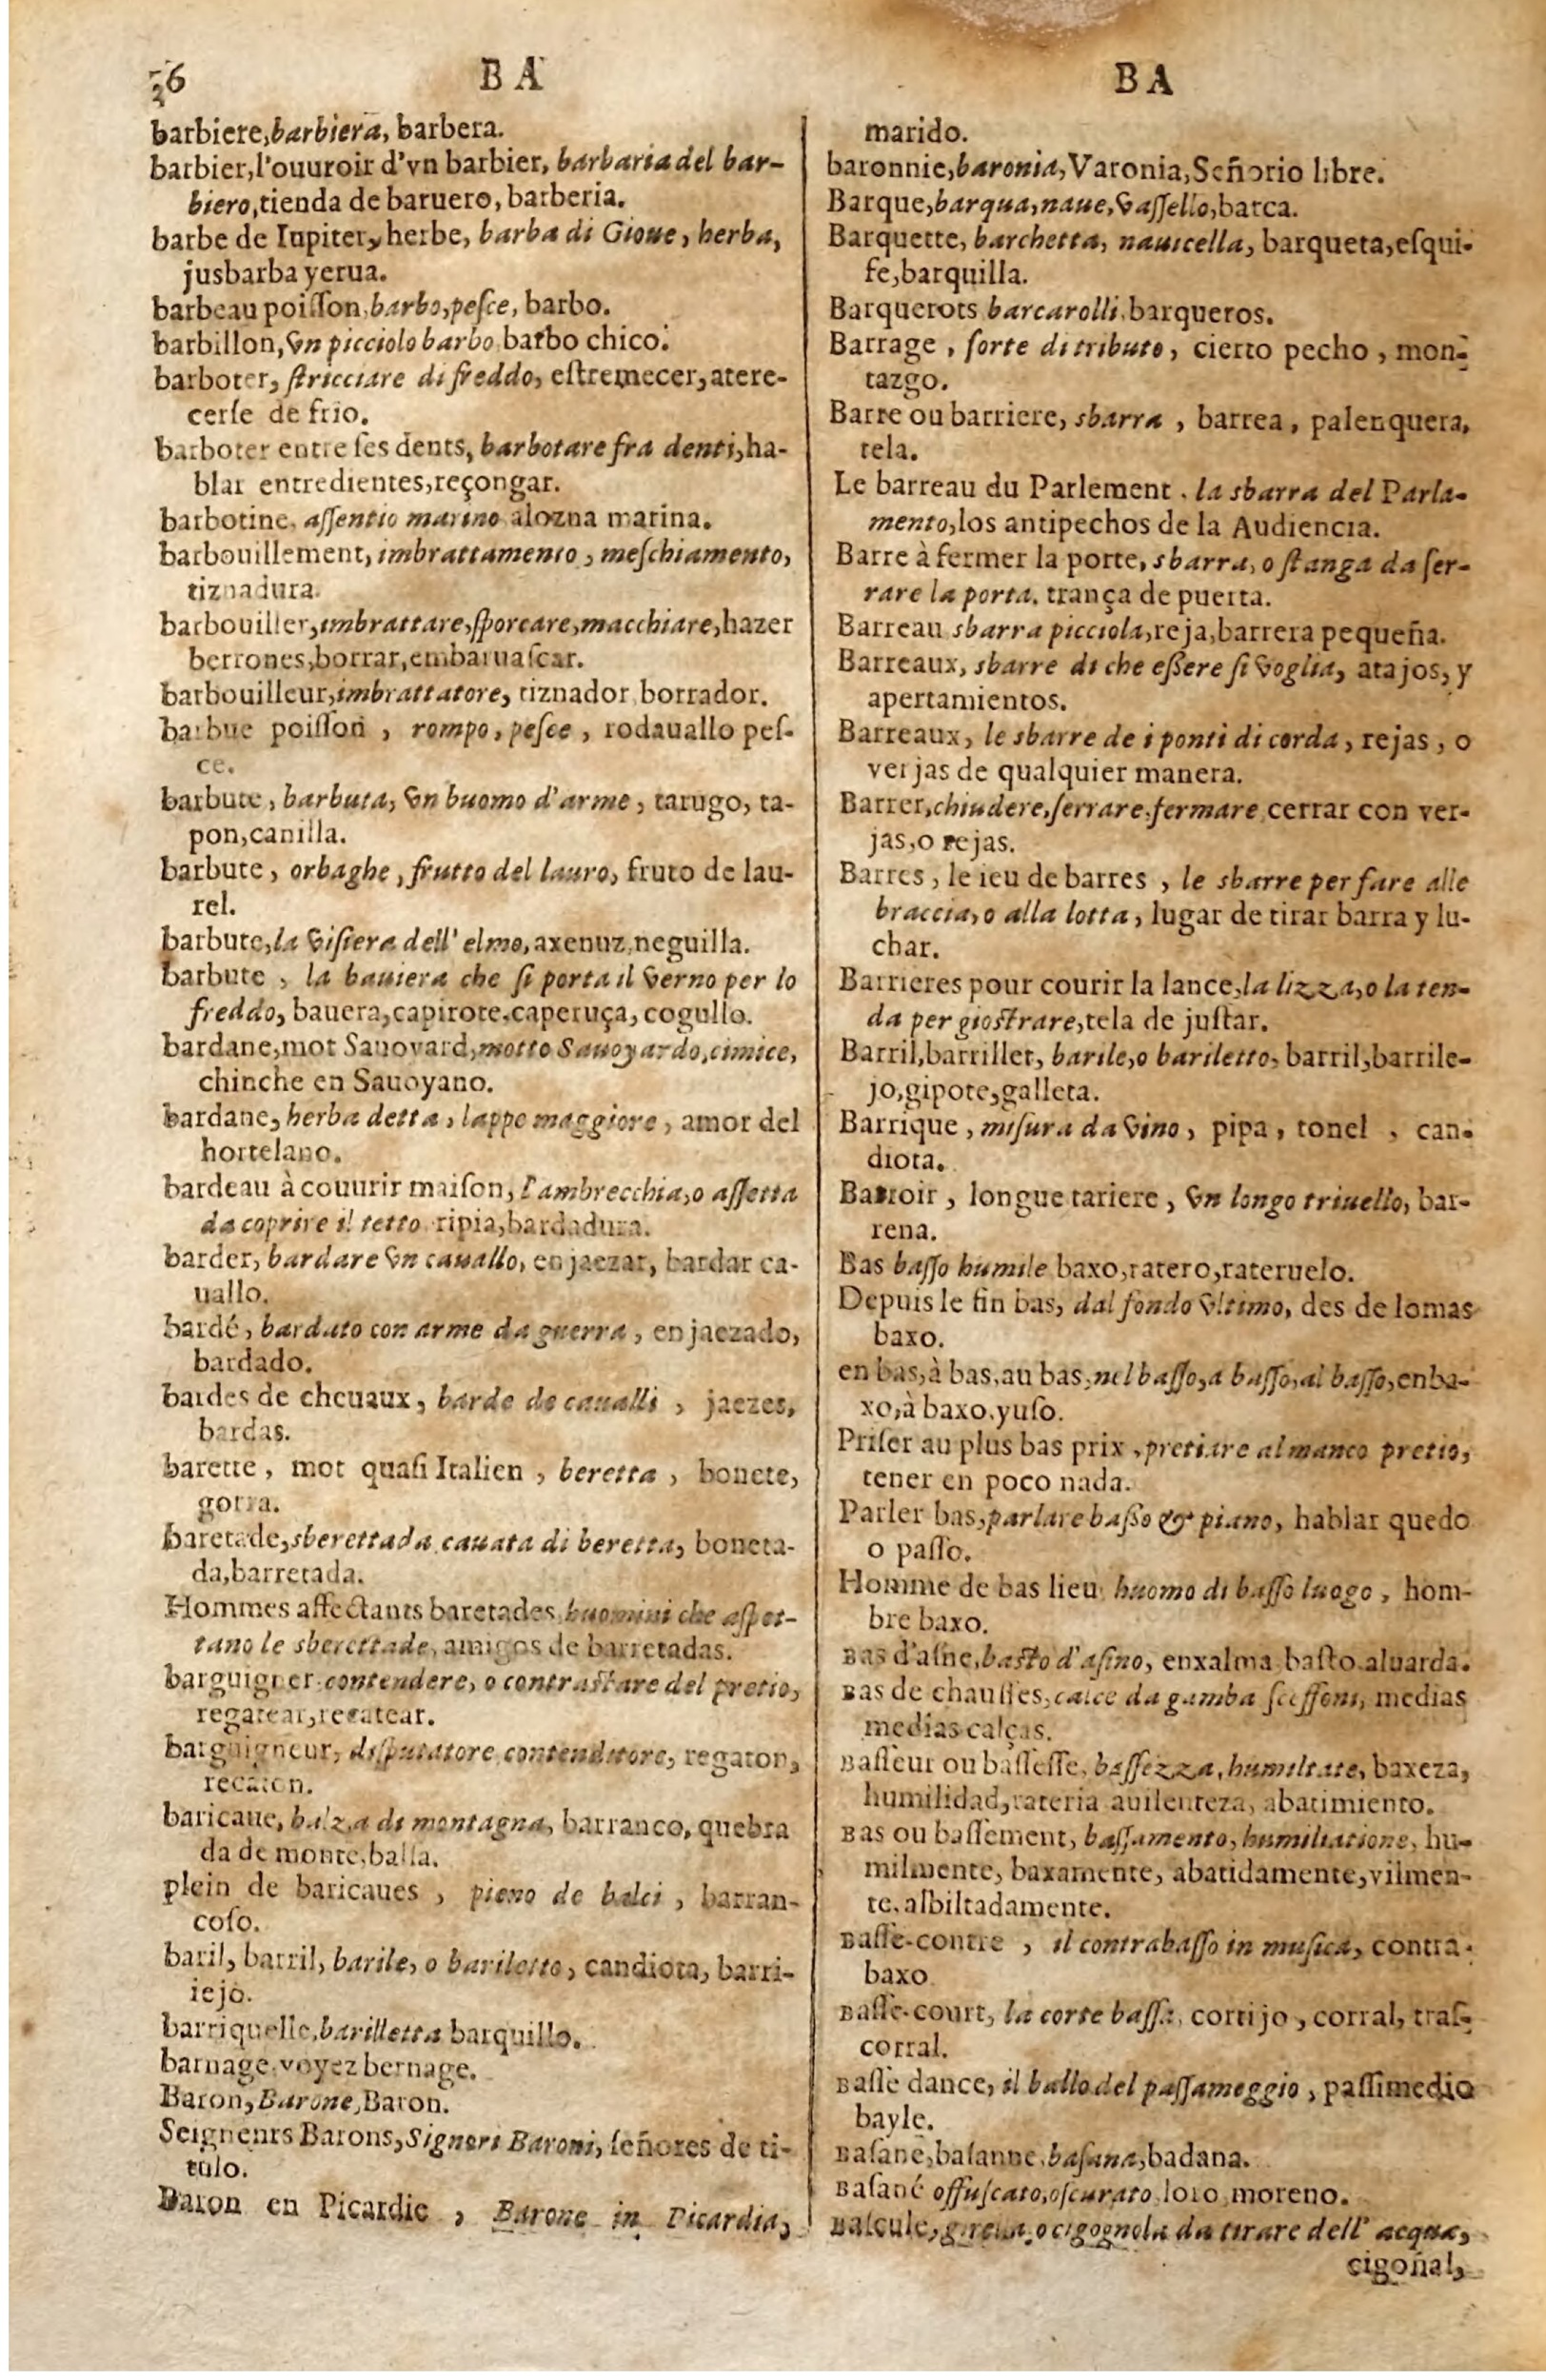 36 BA
barbiere,barbiera, barbera.
barbier,l'ouuroir d'vn barbier, barbaria del bar-
biero,tienda de baruero, barberia.
barbe de Iupiter, herbe, barba di Gioue, herba,
jusbarba yerua.
barbeau poiſſon,barbo,peſce, barbo.
barbillon,vn picciolo barbo barbo chico.
barboter, ſtricciare di freddo, eſtremecer,atere-
cerſe de frio.
barboter entre ſes dents, barbotare fra denti,ha-
blar entredientes,reçongar.
barbotine, aſſentio marino alozna marina.
barbouillement,imbrattamento, meſchiamento,
tiznadura.
barbouiller,imbrattare,ſporcare,macchiare,hazer
berrones,borrar,embaruaſcar.
barbouilleur,imbrattatore, tiznador borrador.
barbue poiſſon , rompo, peſce , rodauallo peſ-
ce.
barbute, barbuta, vn buomo d'arme, tarugo, ta-
pon,canilla.
barbute, orbaghe, frutto del lauro, fruto de lau-
rel.
barbute,la viſiera dell' elmo,axenuz,neguilla.
barbute , la bauiera che ſi porta il verno per lo
freddo, bauera,capirote,caperuça, cogullo.
bardane,mot Sauoyard,motto Sauoyardo,cimice,
chinche en Sauoyano.
bardane, herba detta, lappe maggiore, amor del
hortelano.
bardeau à couurir maiſon, l'ambrecchia,o aſſetta
da coprire il tetto ripia,bardadura.
barder, bardare vn cauallo, enjaezar, bardar ca-
uallo.
bardé, bardato con arme da guerra, enjaezado,
bardado.
bardes de cheuaux, barde de caualli , jaezes,
bardas.
barette, mot quaſi Italien , beretta, bonete,
gorra.
baretade,sberettada cauata di beretta, boneta-
da,barretada.
Hommes affectants baretades huomini che aſpet-
tano le sberettade, amigos de barretadas.
barguigner contendere, o contraſtare del pretio,
regatear,recatear.
barguigneur, diſputatore contenditore, regaton,
recaton.
baricaue, balza di montagna, barranco, quebra
da de monte,balſa.
plein de baricaues , pieno de balci , barran-
coſo.
baril, barril, barile, o bariletto, candiota, barri-
iejo.
barriquelle,barilletta barquillo.
barnage voyez bernage.
Baron,Barone,Baron.
Seigneurs Barons,Signori Baroni, ſeñores de ti-
tulo.
Baron en Picardie , Barone in Picardia,
BA
marido.
baronnie,baronia,Varonia,Señorio libre.
Barque,barqua,naue,vaſſello,barca.
Barquette, barchetta, nauicella, barqueta,eſqui-
fe,barquilla.
Barquerots barcarolli barqueros.
Barrage , ſorte di tributo, cierto pecho , mon-
tazgo.
Barre ou barriere, sbarra , barrea, palenquera,
tela.
Le barreau du Parlement . la sbarra del Parla-
mento,los antipechos de la Audiencia.
Barre à fermer la porte, sbarra, o ſtanga da ſer-
rare la porta. trança de puerta.
Barreau sbarra picciola,reja,barrera pequeña.
Barreaux, sbarre di che eſſere ſi voglia, atajos, y
apertamientos.
Barreaux, le sbarre de i ponti di corda , rejas, o
verjas de qualquier manera.
Barrer,chiudere,ſerrare,fermare cerrar con ver-
jas,o rejas.
Barres, le ieu de barres , le sbarre per fare alle
braccia,o alla lotta, lugar de tirar barra y lu-
char.
Barrieres pour courir la lance,la lizza,o la ten-
da per gioſtrare,tela de juſtar.
Barril,barrillet, barile,o bariletto, barril,barrile-
jo,gipote,galleta.
Barrique, miſura da vino, pipa, tonel , can-
diota.
Barroir , longue tariere, vn longo triuello, bar-
rena.
Bas baſſo humile baxo,ratero,rateruelo.
Depuis le fin bas, dal fondo vltimo, des de lomas
baxo.
en bas,à bas,au bas,nel baſſo,a baſſo,al baſſo,enba-
xo,à baxo,yuſo.
Priſer au plus bas prix ,pretiare al manco pretio,
tener en poco nada.
Parler bas,parlare baſſo & piano, hablar quedo
o paſſo.
Homme de bas lieu huomo di baſſo luogo, hom-
bre baxo.
Bas d'aſne,baſto d'aſino, enxalma baſto aluarda.
Bas de chauſſes,calce da gamba medias
medias calças.
Baſſeur ou baſſeſſe, baſſezza, humiltate, baxeza,
humilidad,rateria auilenteza, abatimiento.
Bas ou baſſement, baſſamento, humiliatione, hu-
milmente, baxamente, abatidamente,vilmen-
te,albiltadamente.
Baſſe-contre , il contrabaſſo in muſica, contra-
baxo
Baſſe-court, la corte baſſa, cortijo, corral, traſ-
corral.
Baſſe dance, il ballo del paſſameggio, paſſimedio
bayle.
Baſane,baſanne,baſana,badana.
Baſané offuſcato,oſcurato loro moreno.
Baſcule,girella,o cigognola da tirare dell' acqua,
cigoñal,